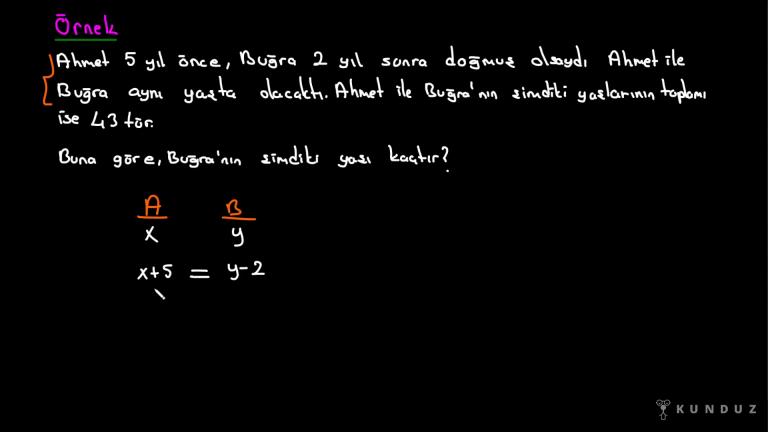 Örnek
Ahmet 5 yıl önce, Buğra 2 yıl sonra doğmuş olsaydı Ahmet ile
Buğra aynı yaşta olacaktı. Ahmet ile Buğra'nın şimdiki yaşlarının toplamı
ise 43 tür.
Buna göre, Buğra'nın şimdiki yaşı kaçtır?
A B
x y
x+5 = y-2
KUNDUZ